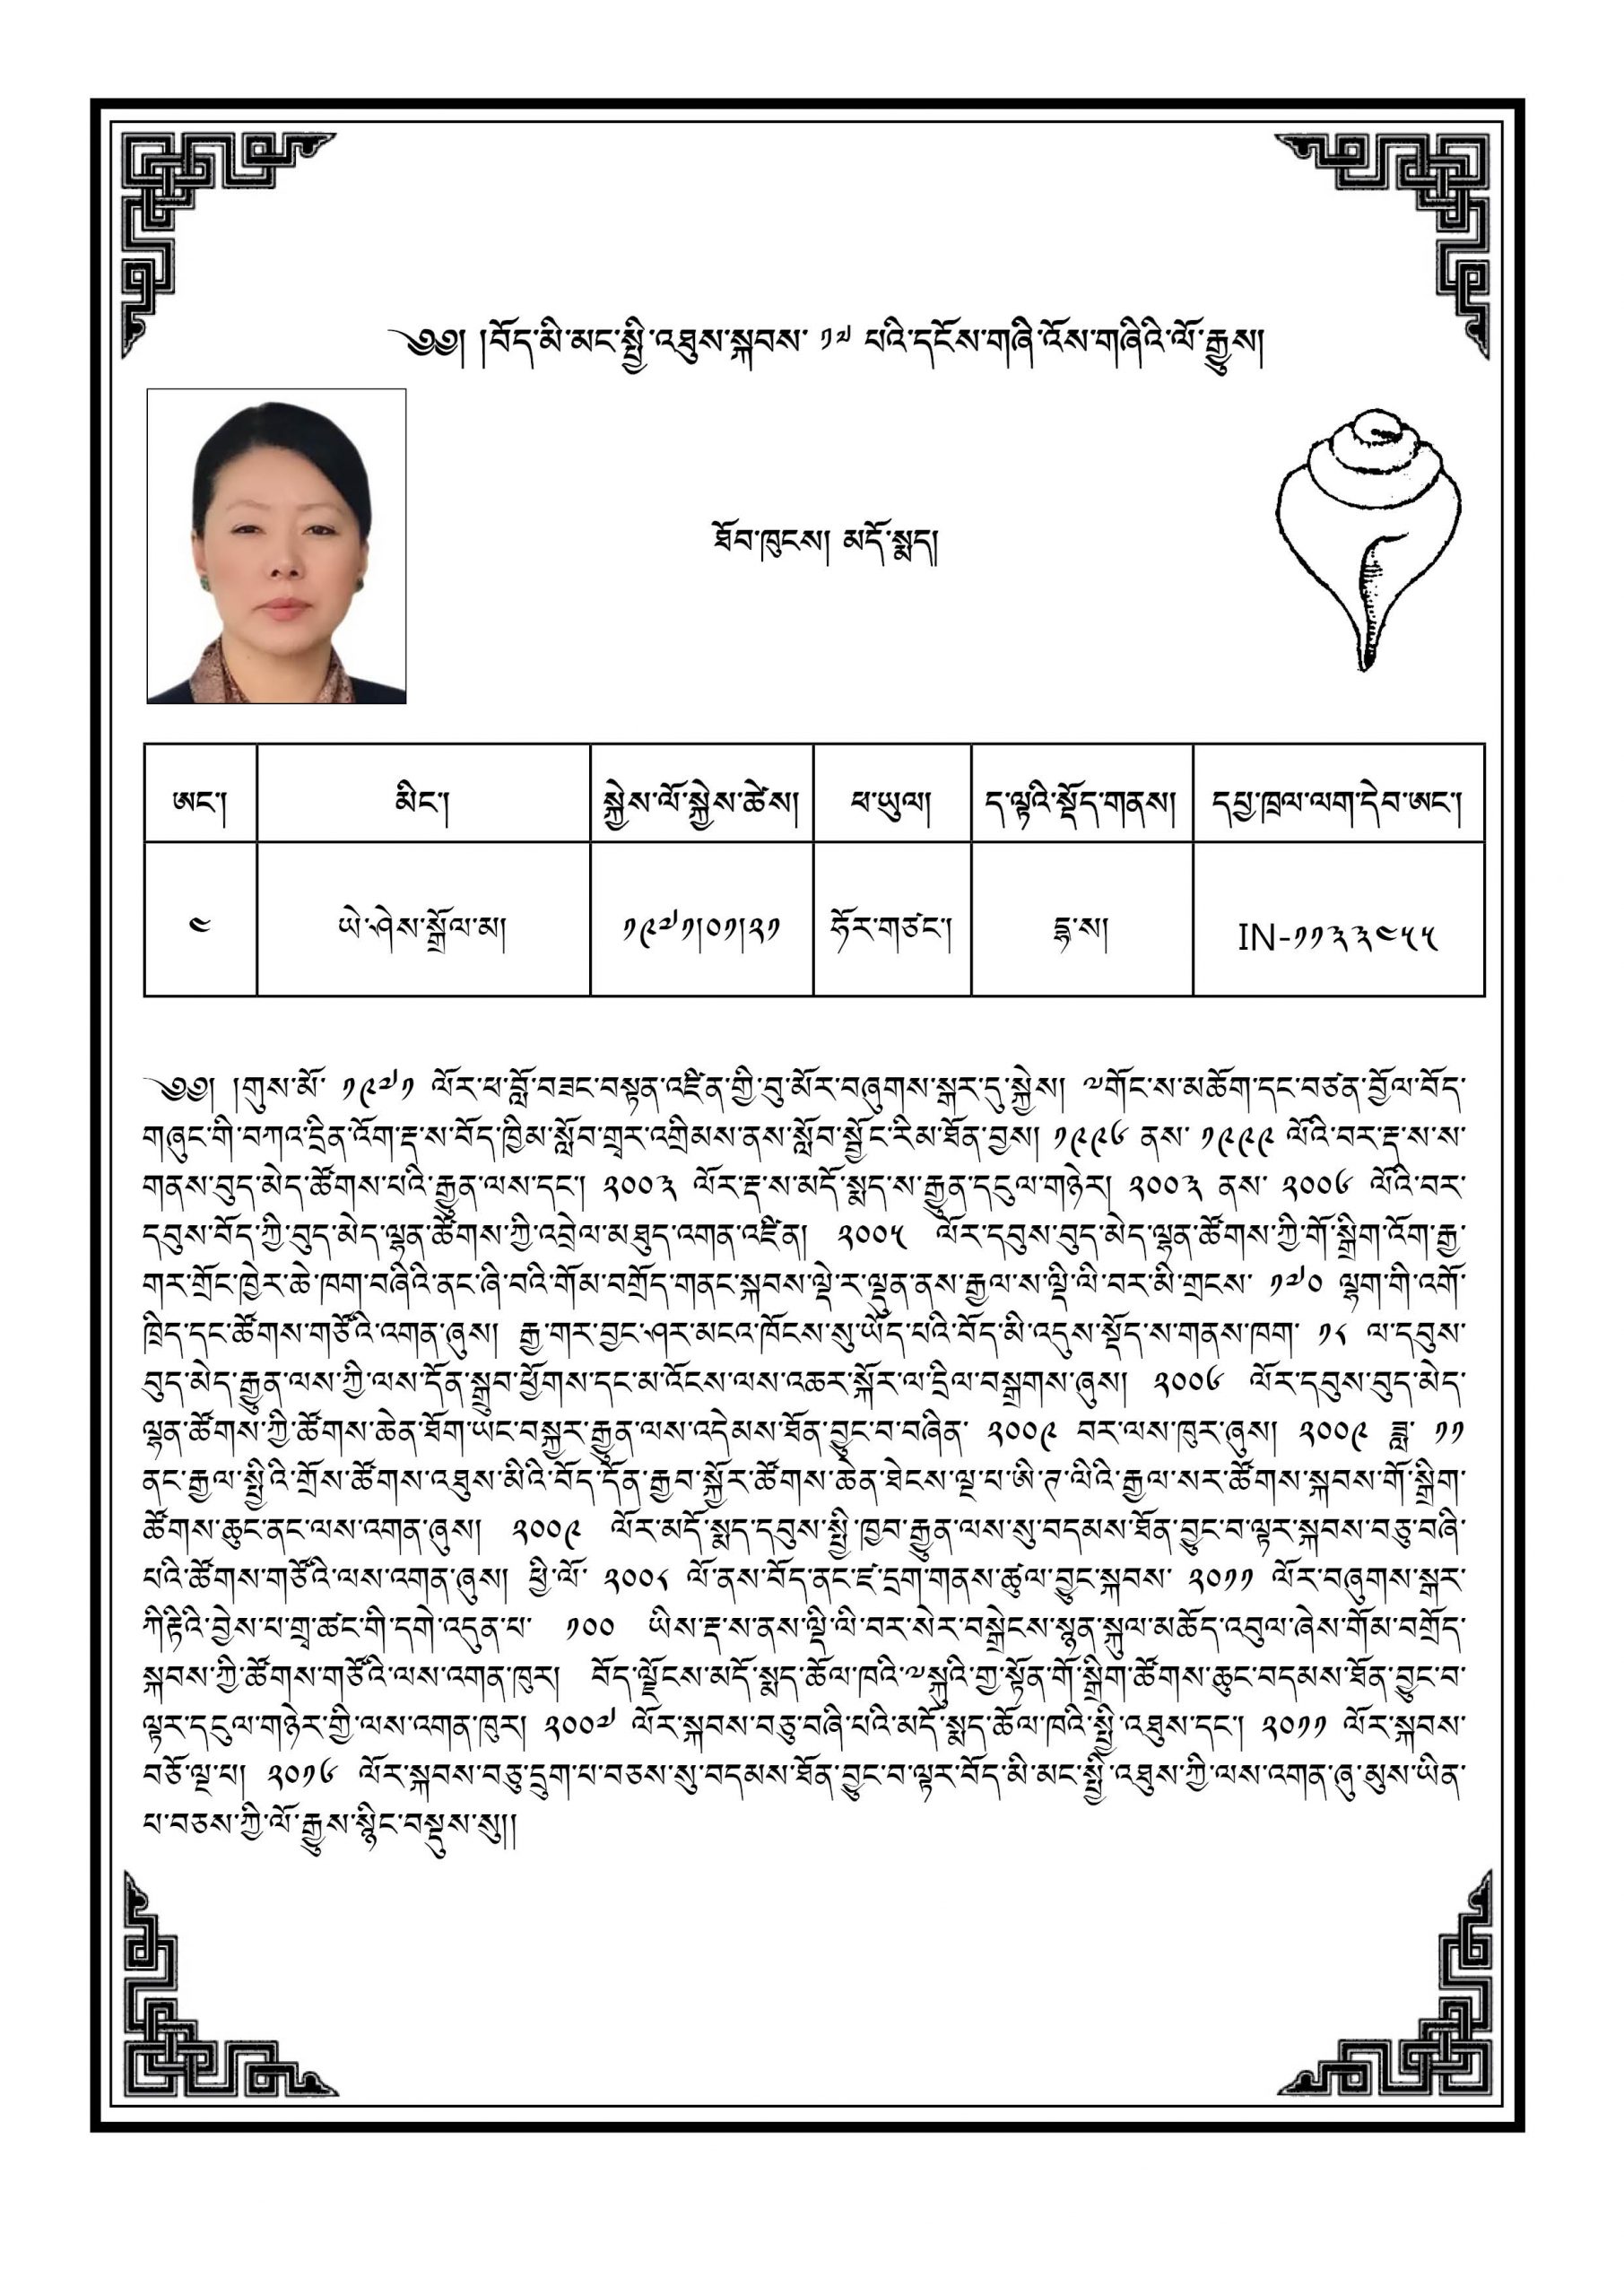 ༄༅། །བོད་མི་མང་སྤྱི་འཐུས་སྐབས་ ༡༧ པའི་དངོས་གཞི་འོས་གཞིའི་ལོ་རྒྱུས།
ཐོབ་ཁུངས། མདོ་སྨད།
ཨང་། མིང་། སྐྱེས་ལོ་སྐྱེས་ཚེས། ཕ་ཡུལ། ད་ལྟའི་སྡོད་གནས། དཔྱ་ཁྲལ་ལག་དེབ་ཨང་།
༤ ཡེ་ཤེས་སྒྲོལ་མ། ༡༩༧༡།༠༡།༢༡ ཧོར་གཙང་། དྷ་ས། IN-༡༡༣༣༤༥༥
༄༅། །གུས་མོ་ ༡༩༧༡ ལོར་ཕ་བློ་བཟང་བསྟན་འཛིན་གྱི་བུ་མོར་བཞུགས་སྒར་དུ་སྐྱེས། ༸གོང་ས་མཆོག་དང་བཙན་བྱོལ་བོད་
གཞུང་གི་བཀའ་དྲིན་འོག་རྡ་ས་བོད་ཁྱིམ་སློབ་གྲྭར་འགྲིམས་ནས་སློབ་སྦྱོང་རིམ་ཐོན་བྱས། ༡༩༩༦ ནས་ ༡༩༩༩ ལོའི་བར་རྡ་ས་ས་
གནས་བུད་མེད་ཚོགས་པའི་རྒྱུན་ལས་དང་། ༢༠༠༣ ལོར་རྡ་ས་མདོ་སྨད་ས་རྒྱུན་དངུལ་གཉེར། ༢༠༠༣ ནས་ ༢༠༠༦ ལོའི་བར་
དབུས་བོད་ཀྱི་བུད་མེད་ལྷན་ཚོགས་ཀྱི་འབྲེལ་མཐུད་འགན་འཛིན། ༢༠༠༥ ལོར་དབུས་བུད་མེད་ལྷན་ཚོགས་ཀྱི་གོ་སྒྲིག་འོག་རྒྱ་
གར་གྲོང་ཁྱེར་ཆེ་ཁག་བཞིའི་ནང་ཞི་བའི་གོམ་བགྲོད་གནང་སྐབས་ལྡེ་ར་ལྡུན་ནས་རྒྱལ་ས་ལྡི་ལི་བར་མི་གྲངས་ ༡༧༠ ལྷག་གི་འགོ་
ཁྲིད་དང་ཚོགས་གཙོའི་འགན་ཞུས། རྒྱ་གར་བྱང་ཤར་མངའ་ཁོངས་སུ་ཡོད་པའི་བོད་མི་འདུས་སྡོད་ས་གནས་ཁག་ ༡༨ ལ་དབུས་
བུད་མེད་རྒྱུན་ལས་ཀྱི་ལས་དོན་སྒྲུབ་ཕྱོགས་དང་མ་འོངས་ལས་འཆར་སྐོར་ལ་དྲིལ་བསྒྲགས་ཞུས། ༢༠༠༦ ལོར་དབུས་བུད་མེད་
ལྷན་ཚོགས་ཀྱི་ཚོགས་ཆེན་ཐོག་ཡང་བསྐྱར་རྒྱུན་ལས་འདེམས་ཐོན་བྱུང་བ་བཞིན་ ༢༠༠༩ བར་ལས་ཁུར་ཞུས། ༢༠༠༩ ཟླ་ ༡༡
ནང་རྒྱལ་སྤྱིའི་གྲོས་ཚོགས་འཐུས་མིའི་བོད་དོན་རྒྱབ་སྐྱོར་ཚོགས་ཆེན་ཐེངས་ལྔ་པ་ཨི་ཊ་ལིའི་རྒྱལ་སར་ཚོགས་སྐབས་གོ་སྒྲིག་
ཚོགས་ཆུང་ནང་ལས་འགན་ཞུས། ༢༠༠༩ ལོར་མདོ་སྨད་དབུས་སྤྱི་ཁྱབ་རྒྱུན་ལས་སུ་བདམས་ཐོན་བྱུང་བ་ལྟར་སྐབས་བཅུ་བཞི་
པའི་ཚོགས་གཙོའི་ལས་འགན་ཞུས། ཕྱི་ལོ་ ༢༠༠༨ ལོ་ནས་བོད་ནང་ཛ་དྲག་གནས་ཚུལ་བྱུང་སྐབས་ ༢༠༡༡ ལོར་བཞུགས་སྒར་
ཀིརྟིའི་བྱེས་པ་གྲྭ་ཚང་གི་དགེ་འདུན་པ་ ༡༠༠ ཡིས་རྡ་ས་ནས་ལྡི་ལི་བར་སེར་བསྒྲེངས་སྙན་སྐུལ་མཆོད་འབུལ་ཞེས་གོམ་བགྲོད་
སྐབས་ཀྱི་ཚོགས་གཙོའི་ལས་འགན་ཁུར། བོད་ལྗོངས་མདོ་སྨད་ཆོལ་ཁའི་༸སྐུའི་གྱ་སྟོན་གོ་སྒྲིག་ཚོགས་ཆུང་བདམས་ཐོན་བྱུང་བ་
ལྟར་དངུལ་གཉེར་གྱི་ལས་འགན་ཁུར། ༢༠༠༧ ལོར་སྐབས་བཅུ་བཞི་པའི་མདོ་སྨད་ཆོལ་ཁའི་སྤྱི་འཐུས་དང་། ༢༠༡༡ ལོར་སྐབས་
བཅོ་ལྔ་པ། ༢༠༡༦ ལོར་སྐབས་བཅུ་དྲུག་པ་བཅས་སུ་བདམས་ཐོན་བྱུང་བ་ལྟར་བོད་མི་མང་སྤྱི་འཐུས་ཀྱི་ལས་འགན་ཞུ་མུས་ཡིན་
པ་བཅས་ཀྱི་ལོ་རྒྱུས་སྙིང་བསྡུས་སུ།།